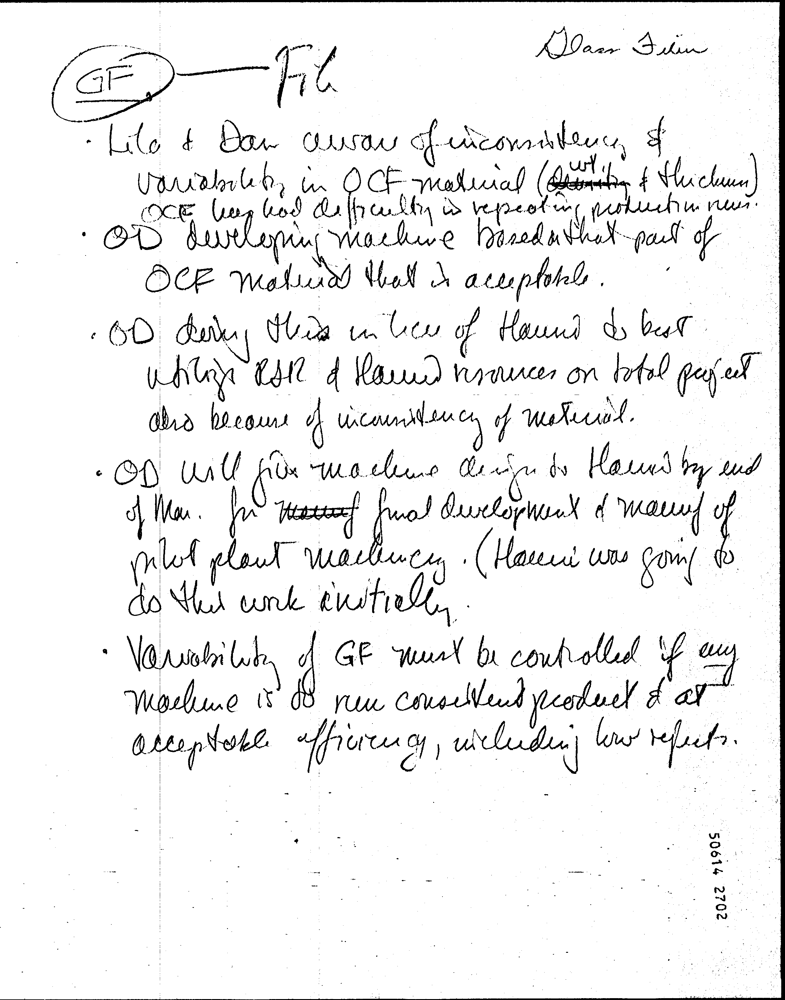 Glass Fiber
GF — File
· Lila & Dan aware of inconsistency &
variability in OCF material (wt. & thickness)
OCF has had difficulty in repeating production runs.
· OD developing machine based on that part of
OCF material that is acceptable.
· OD doing this in lieu of Hauni to best
utilize RJR & Hauni resources on total project
also because of inconsistency of material.
· OD will give machine design to Hauni by end
of Mar. for final development & manuf of
pilot plant machinery. (Hauni was going to
do this work initially.
· Variability of GF must be controlled if any
machine is to run consistent product & at
acceptable efficiency, including low rejects.
50614 2702